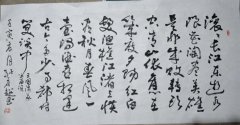 滚滚长江东逝水
浪花淘尽英雄
是非成败转头
空青山依旧在
几度夕阳红白
发渔樵江渚上惯
看秋月春风一
壶浊酒喜相逢
古今多少事都付
笑谈中